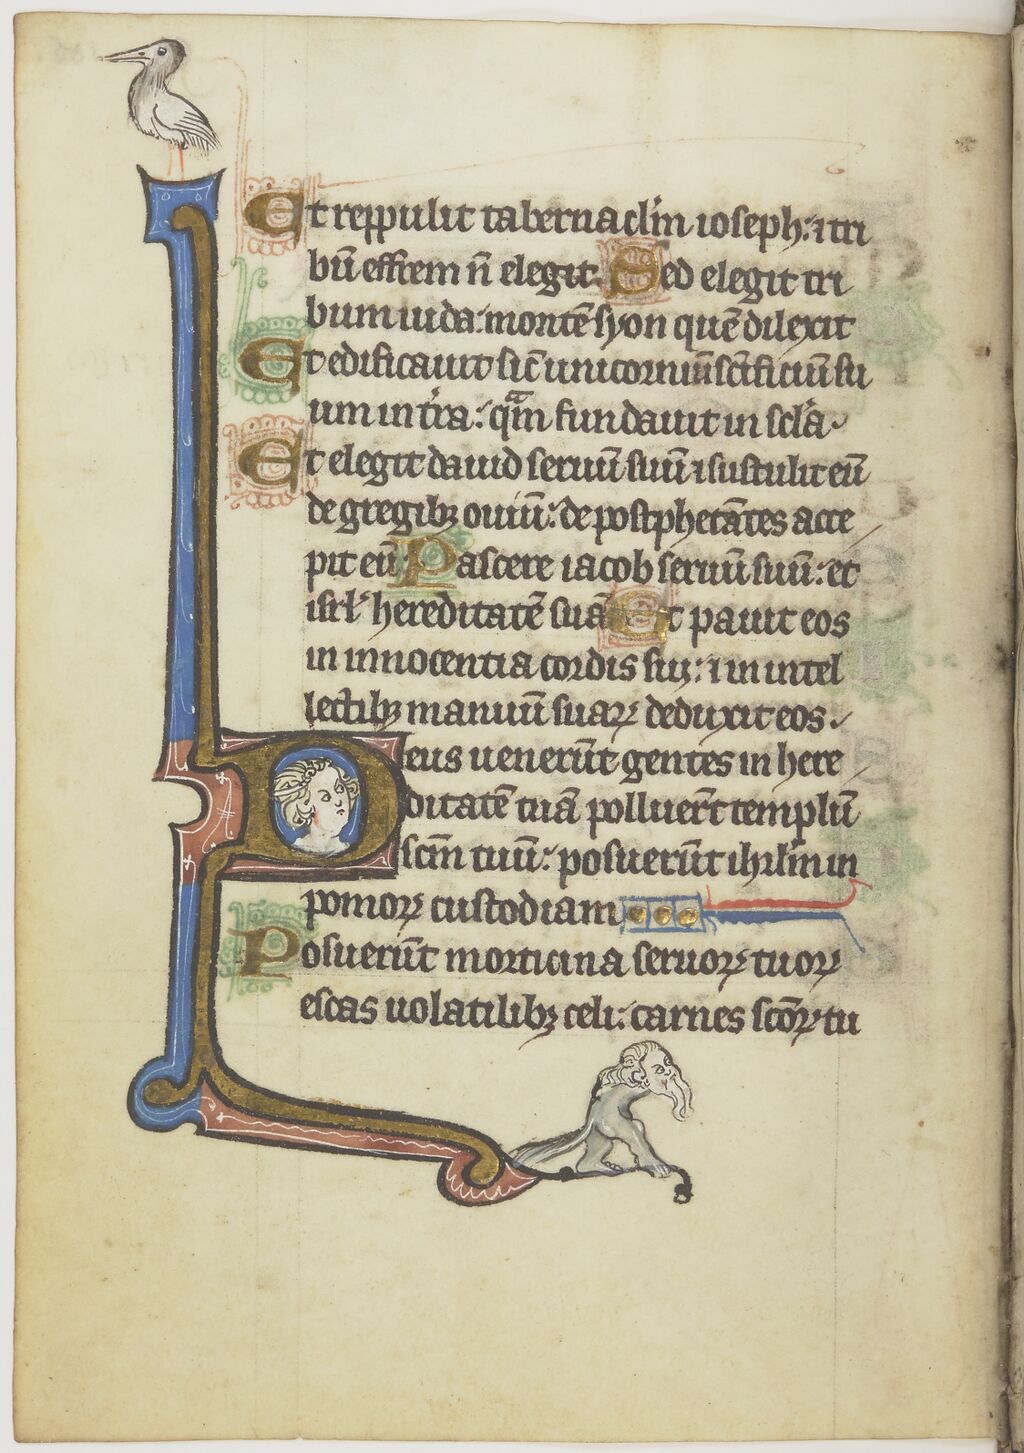 Et reppulit tabernacl'm ioseph: ⁊ tri
bū effrem n̄ elegit. Sed elegit tri
bum iuda: montē syon quē dilexit
Et edificauit sic̄ unicorniū sc̄ificiū su
um in tr̄a: qᵃm fundauit in scl'a
Et elegit dauid seruū suū ⁊ sustulit eū
de gregibꝫ ouiū: de post phetātes acce
pit eū Pascere iacob seruū suū: et
isrl' hereditatē suā Et pauit eos
in innocentia cordis sui: ⁊ in intel
lectibꝫ manuū suaꝝ deduxit eos.
Deus uenerūt gentes in here
ditatē tuā polluer̄t templū
sc̄m tuū: posuerūt ihrl'm in
pomoꝝ custodiam
Posuerūt morticina seruoꝝ tuoꝝ
escas uolatilibꝫ celi: carnes sc̄oꝝ tu